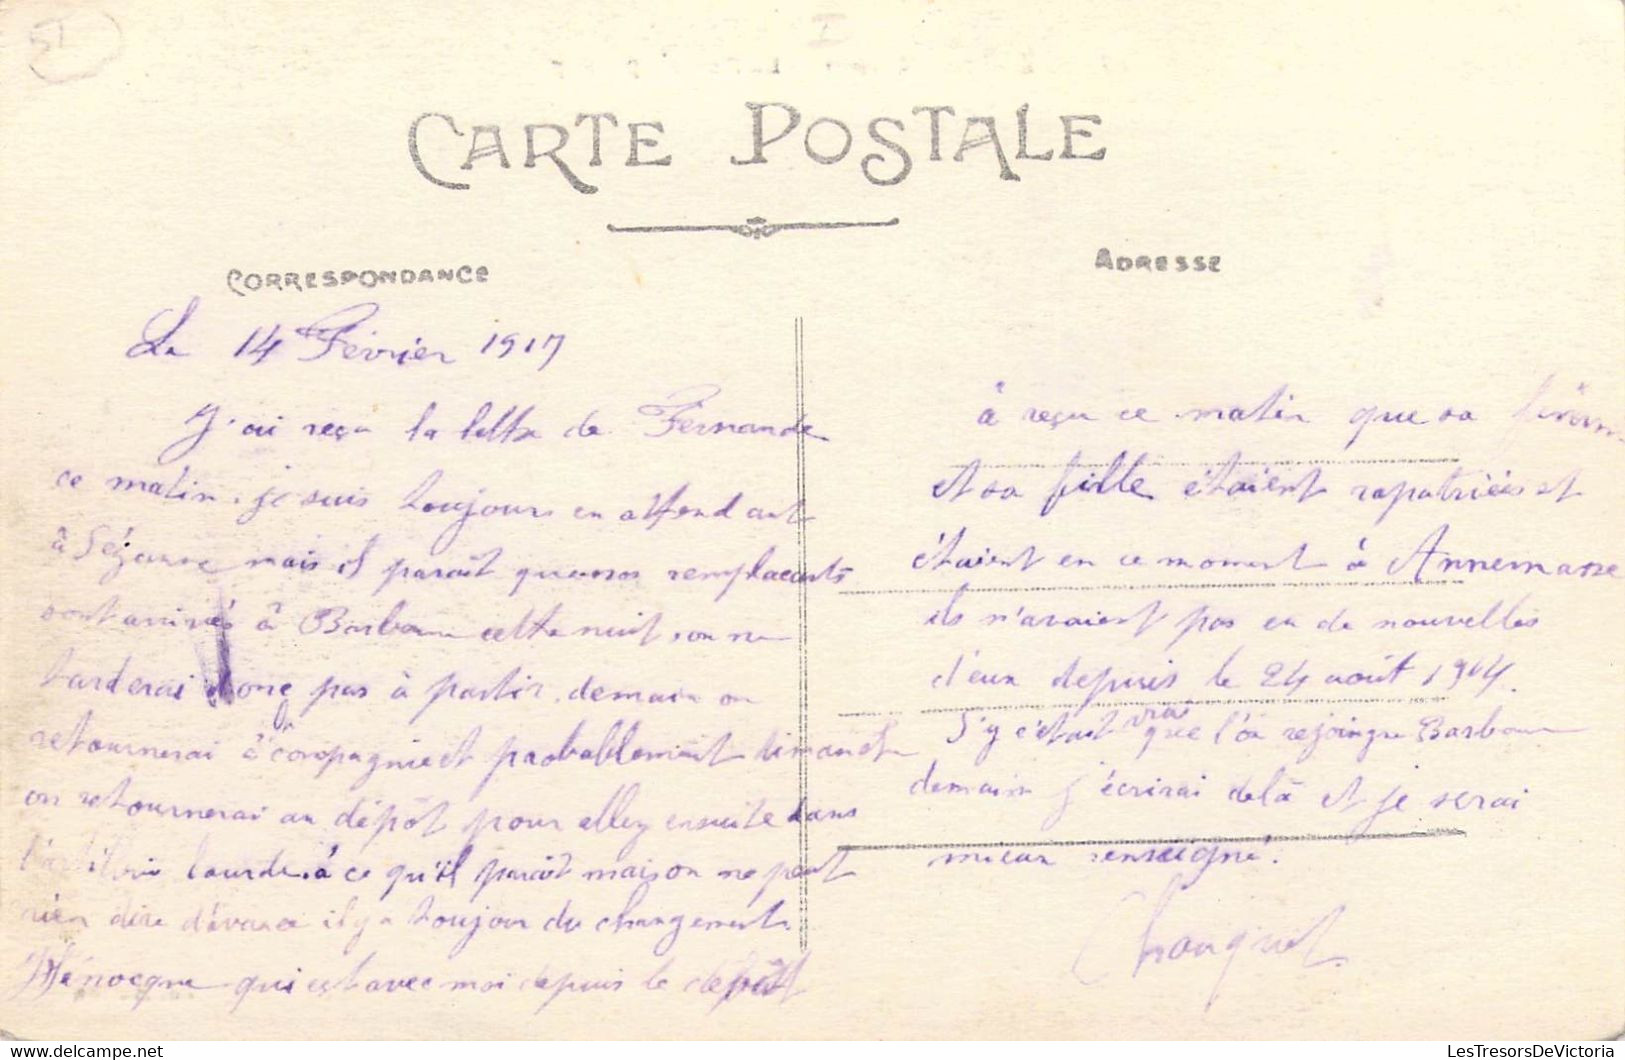 51
CARTE POSTALE
CORRESPONDANCE
ADRESSE
Le 14 Février 1917
J'ai reçu la lettre de Fernande
ce matin. je suis toujours en attendant
à Sézanne mais il parait que nos remplacents
sont arrivés à Barbonne cette nuit, on ne
tarderai donc pas à partir. demain on
retournerai à compagnie et probablement dimanche
on retournerai au dépôt pour allez ensuite dans
l'artillerie lourde. à ce qu'il parait mais on ne peut
rien dire d'avance il y a toujour du changement.
Hénocque qui est avec moi depuis le dépôt
à reçu ce matin que sa
et sa fille étaient rapatriées et
étaient en ce moment à Annemasse
ils n'avaient pas eu de nouvelles
d'eux depuis le 24 août 1914.
S'y c'était vrai que l'on rejoingne Barbonne
demain j'écrirai delà et je serai
mieux renseigné.
Chouquet
LesTresorsDeVictoria
delcampe.net
LesTresorsDeVictoria